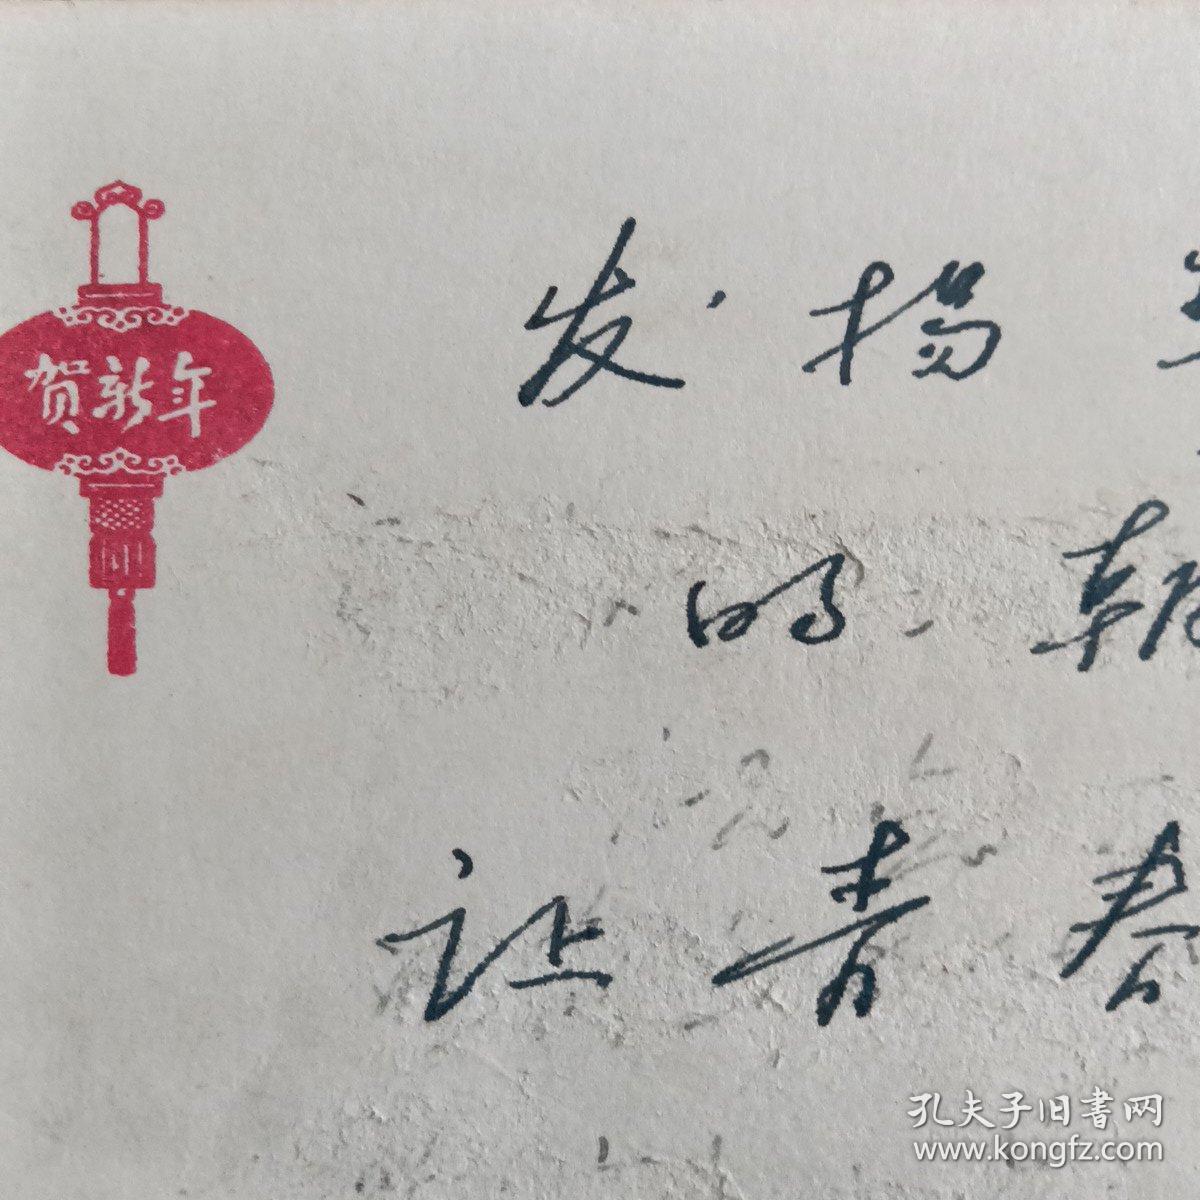 贺新年
发扬
的朝
让青春
孔夫子旧書网
www.kongfz.com